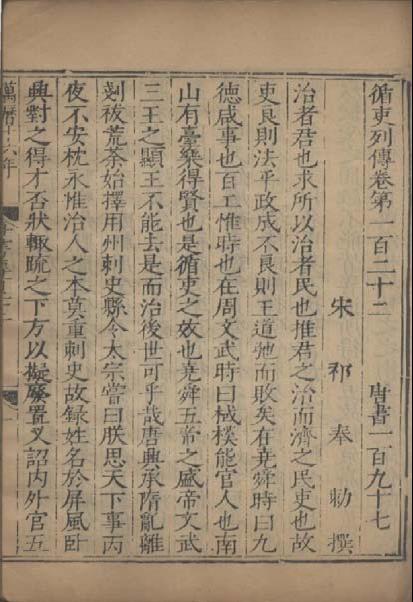 循吏列傳卷第一百二十二 唐書一百九十七
宋祁奉勅撰
治者君也求所以治者民也推君之治而濟之民吏也故
吏良則法平政成不良則王道弛而敗矣在堯舜時曰九
德咸事也百工惟時也在周文武時曰棫樸能官人也南
山有臺樂得賢也是循吏之效也堯舜五帝之盛帝文武
三王之顯王不能去是而治後世可乎哉唐興承隋亂離
剗祓荒荼始擇用州刺史縣令太宗嘗曰朕思天下事丙
夜不安枕永惟治人之本莫重刺史故錄姓名於屏風臥
興對之得才否狀輙疏之下方以擬廢置又詔內外官五
萬曆十六年